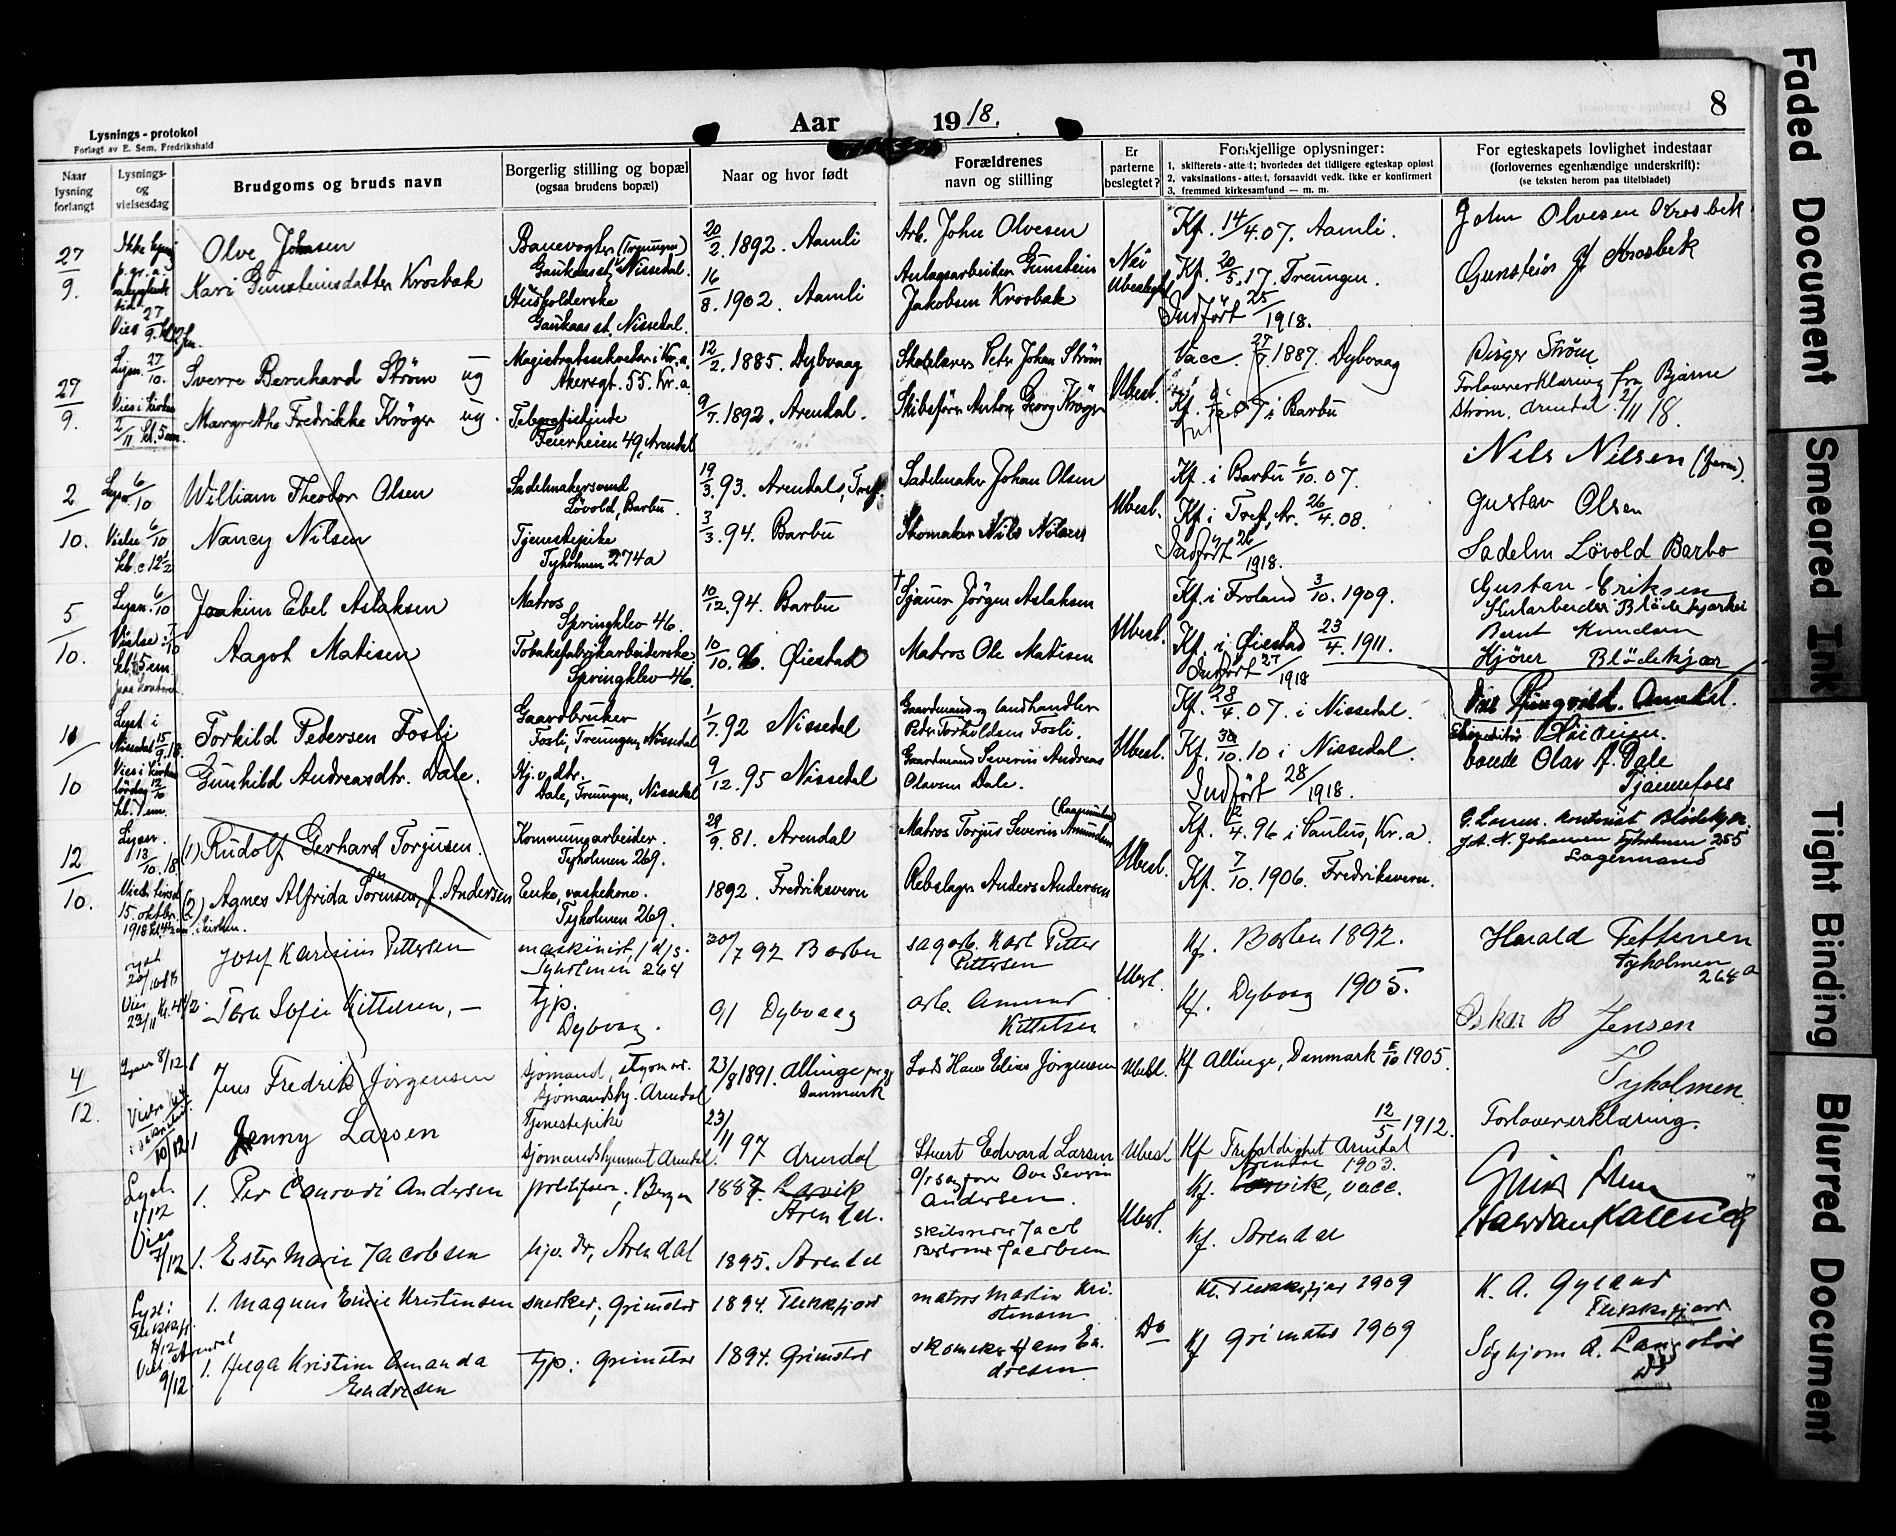 Lysnings - protokol
Forlagt av E. Sem, Fredrikshald
Aar 1918.
8
Naar lysning forlangt
Lysnings- og vielsesdag
Brudgoms og bruds navn
Borgerlig stilling og bopæl
(ogsaa brudens bopæl)
Naar og hvor født
Forældrenes
navn og stilling
Er parterne beslegtet?
Forskjellige oplysninger:
1, skifterets-attest; hvorledes det tidligere egteskap opløst
2, vaksinations-attest, forsaavidt vedk. ikke er konfirmert
3, fremmed kirkesamfund — m. m.
For egteskapets lovlighet indestaar
(forlovernes egenhændige underskrift):
(se teksten herom paa titelbladet)
27/9.
Vies 27/9.
Olve Johnsen
Banevogter (Treungen)
Gaukaas st, Nissedal.
20/2. 1892. Aamli
Arb. John Olvesen
Nei
Ubeslegtet
Kf. 14/4.07. Aamli.
John Olvesen Krosbek
Kari Gunsteinsdatter Krosbak
Husholderske
Gaukaas st. Nissedal.
16/8. 1902. Aamli
Anlagsarbeider Gunstein
Jakobsen Krosbak
Kf. 20/5.17. Treungen.
Indført 25/1918.
Gunstein J Krosbek
27/9.
Lysn. 27/10.
Vies i kirken
2/11 kl. 5 em.
Sverre Bernhard Strøm ug
Magistratssekretær i Kr.a.
Akersgt. 55. Kr.a
12/2. 1885. Dybvaag
Peter Johan Strøm
Ubesl.
Vacc. 27/7. 1887. Dybvaag
Birger Strøm
Forlovererklæring fra Bjarne
Strøm, Arendal 2/11 18.
Margrethe Fredrikke Krøger ug.
Telegrafistinde
Feierheien 49, Arendal
9/7. 1892. Arendal.
Skibsfører Anton Georg Krøger
i Barbu
2/10.
Lysn. 6/10
Vielse 6/10
kl. c 12 1/2
William Theodor Olsen
Sadelmakersvend
Løvold, Barbu.
19/3. 93. Arendals, Tref.
Sadelmaker Johan Olsen
Ubesl.
Kf. i Barbu 6/10. 07.
Nils Nilsen
Gustav Olsen
Sadelm Løvold Barbo
Nancy Nilsen
Tjenestepike
Tyholmen 274a
3/3. 94. Barbu
Skomaker Nils Nilsen
Kf. i Tref, Ar. 26/4.08.
Indført 26/1918.
5/10.
Lysn. 6/10
kl. 5 em.
paa kontoret
Joakim Ebel Aslaksen
Matros
Springklev 46.
10/12. 94. Barbu
† Sjauer Jørgen Aslaksen
Ubesl.
Kf. i Froland 3/10. 1909.
Gustav Eriksen
Blødekjær
Bernt Knudsen
Hjører Blödekjær
Aagot Matisen
Tobaksfabrikarbeiderske
Springklev 46.
10/10. 96. Øiestad
Matros Ole Matisen
Kf. i Øiestad 23/4. 1911.
Indført 27/1918
11/10
Lyst i
Nissedal 15/9.18.
Vies i kirken
lørdag 12/10
kl. 7 em.
Torkild Pedersen Fosli
Gaardbruker
Fosli, Treungen, Nissedal
1/7 92 Nissedal
Gaardmand og landhandler
Peder Torkildsen Fosli.
Ubesl.
Kf. 28/4. 07. i Nissedal.
Gunhild Andreasdtr. Dale.
Hj.v. dtr.
Dale, Treungen, Nissedal
9/12. 95 Nissedal
Gaardmand Severin Andreas
Olavsen Dale.
Kf. 30/10. 10 i Nissedal.
Indført 28/1918.
bonde Olav A. Dale
Tjønnefoss
12/10.
Lysn. 13/10. 18
15. oktbr.
1918
i kirken.
(1) Rudolf Gerhard Torjusen.
Kommunearbeider.
Tyholmen 269.
29/9. 81. Arendal
Matros Torjus Severin Amundsen
Ubesl.
Kf. 4. 96 i Paulus, Kr.a.
Joh. N. Johansen Tyholmen 255
Lagermand
(2) Agnes Alfrida Sørensen, f. Andersen
Enke, vaskekone.
Tyholmen 269.
1892. Fredriksvern
Rebslager Anders Andersen
Kf. 7/10. 1906. Fredriksvern.
Lyst
20/10 18
Vies
23/11 Kl. 4 1/2
Josef Karinius Pettersen
maskinist, d/s.
Tyholmen 264
30/7 92 Barbu
sagarb. Karl Petter
Pettersen
Ubesl.
Kf. Barbu 1892.
Harald Pettersen
Tyholmen
264 a
Tora Sofie Kittelsen, —
tjp.
Dybvaag.
91 Dybvaag
arb.
Kittelsen
Kf. Dybvaag 1905.
Oskar B Jensen
Tyholmen
4/12.
Lysn 8/12
10/12
Jens Fredrik Jørgensen
Sjømand, styrmand.
Sjømandshj. Arendal
23/8 1891. Allinge
Danmark
Lods Hans Elias Jørgensen
Ubesl.
Kf Allinge, Danmark 1905.
Jenny Larsen
Tjenestepike
Sjømandshjemmet Arendal.
23/11 97 Arendal
Stuert Edvard Larsen
Ubesl
12/5 1912.
Kf Trefoldighet Arendal
Forlovererklæring.
Lyst.
1/12
Vies
7/12
1. Per Conradi Andersen
politifuldm. Bergen
1887. Larvik
Arendal.
Ove Severin
Andersen.
Ubesl.
Arendal 1903.
Kf. Larvik, vacc.
1. Ester Marie Jacobsen
hjv. dr, Arendal
1895. Arendal
skibsreder Jacob
Jacobsen
Kf. Arendal
Lyst i
Flekkefj.
1/12
Viet Arendal
9/12
1. Magnus Emil Kristensen
snekker, Grimstad
1894. Flekkefjord
matros Martin Kri-
stensen
Do
Kf. Flekkefjord 1909
K. A. Gyland
Flekkefjord
1. Helga Kristine Amanda
Endresen
tjp: Grimstad
1894. Grimstad
skomaker Hans En-
dresen
Kf Grimstad 1909
Faded Document
Smeared Ink
Tight Binding
Blurred Document